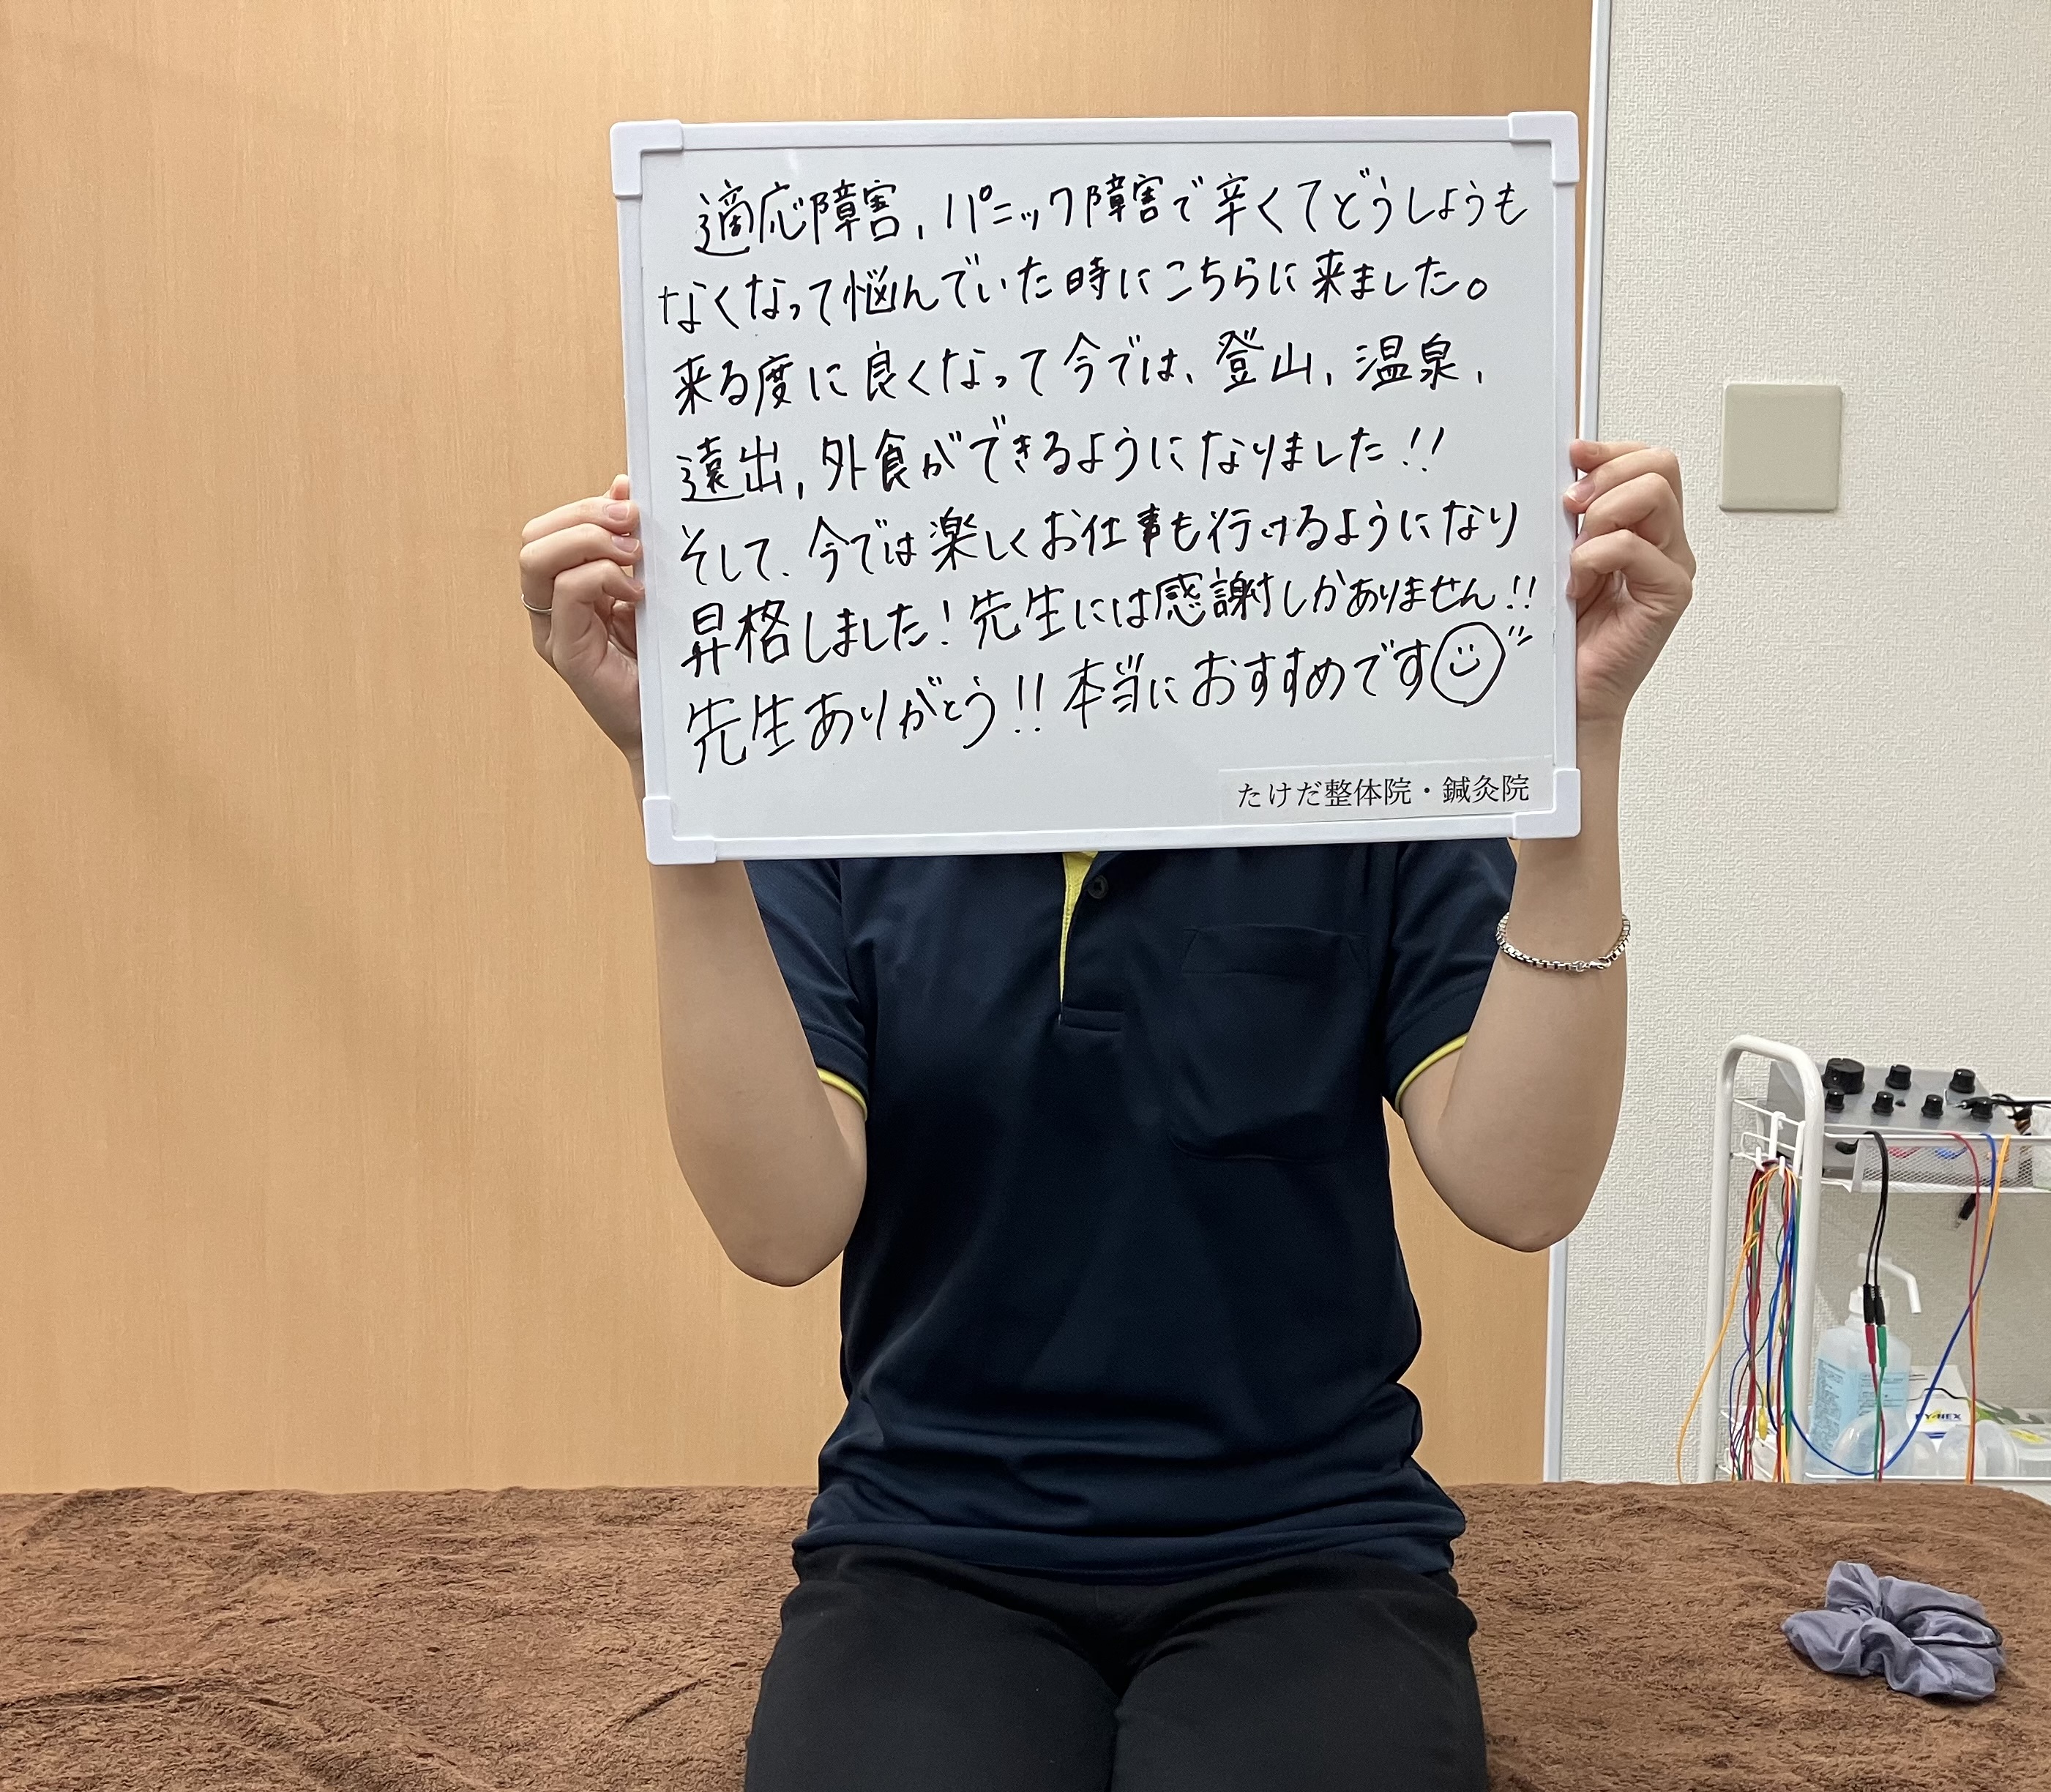 適応障害，パニック障害で辛くてどうしようも
なくなって悩んでいた時にこちらに来ました。
来る度に良くなって今では、登山，温泉，
遠出，外食ができるようになりました!!
そして、今では楽しくお仕事も行けるようになり
昇格しました！先生には感謝しかありません!!
先生ありがとう!!本当におすすめです
たけだ整体院・鍼灸院